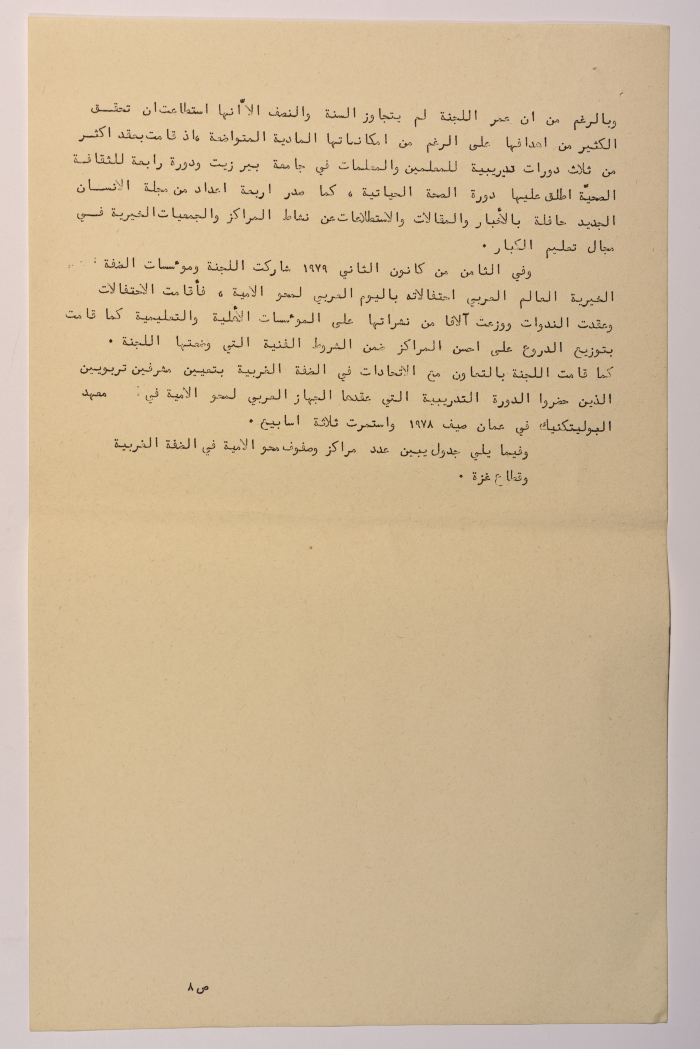 وبالرغم من ان عمر اللجنة لم يتجاوز السنة والنصف الاّ أنها استطاعت ان تحقـــق
الكثير من اهدافها على الرغم من امكاناتها المادية المتواضعة ، اذ قامت بعقد اكثـر
من ثلاث دورات تدريبية للمعلمين والمعلمات في جامعة بير زيت ودورة رابعة للثقافـة
الصحيّة اطلق عليها دورة الصحة الحياتية ، كما صدر اربعة اعداد من مجلة الانســان
الجديد حافلة بالأخبار والمقالات والاستطلاعات عن نشاط المراكز والجمعيات الخيرية فــي
مجال تعليم الكبار .
وفي الثامن من كانون الثاني ١٩٧٩ شاركت اللجنة ومؤسسات الضفة
الخيرية العالم العربي احتفالاته باليوم العربي لمحو الامية ، فأقامت الاحتفالات
وعقدت الندوات ووزعت آلافا من نشراتها على المؤسسات الأهلية والتعليمية كما قامت
بتوزيع الدروع على احسن المراكز ضمن الشروط الفنية التي وضعتها اللجنة .
كما قامت اللجنة بالتعاون مع الاتحادات في الضفة الغربية بتعيين مشرفين تربويين
الذين حضروا الدورة التدريبية التي عقدها الجهاز العربي لمحو الامية في : معهد
البوليتكنيك في عمان صيف ١٩٧٨ واستمرت ثلاثة اسابيع .
وفيما يلي جدول يبين عدد مراكز وصفوف محو الامية في الضفة الغربية
وقطاع غزة .
ص ٨